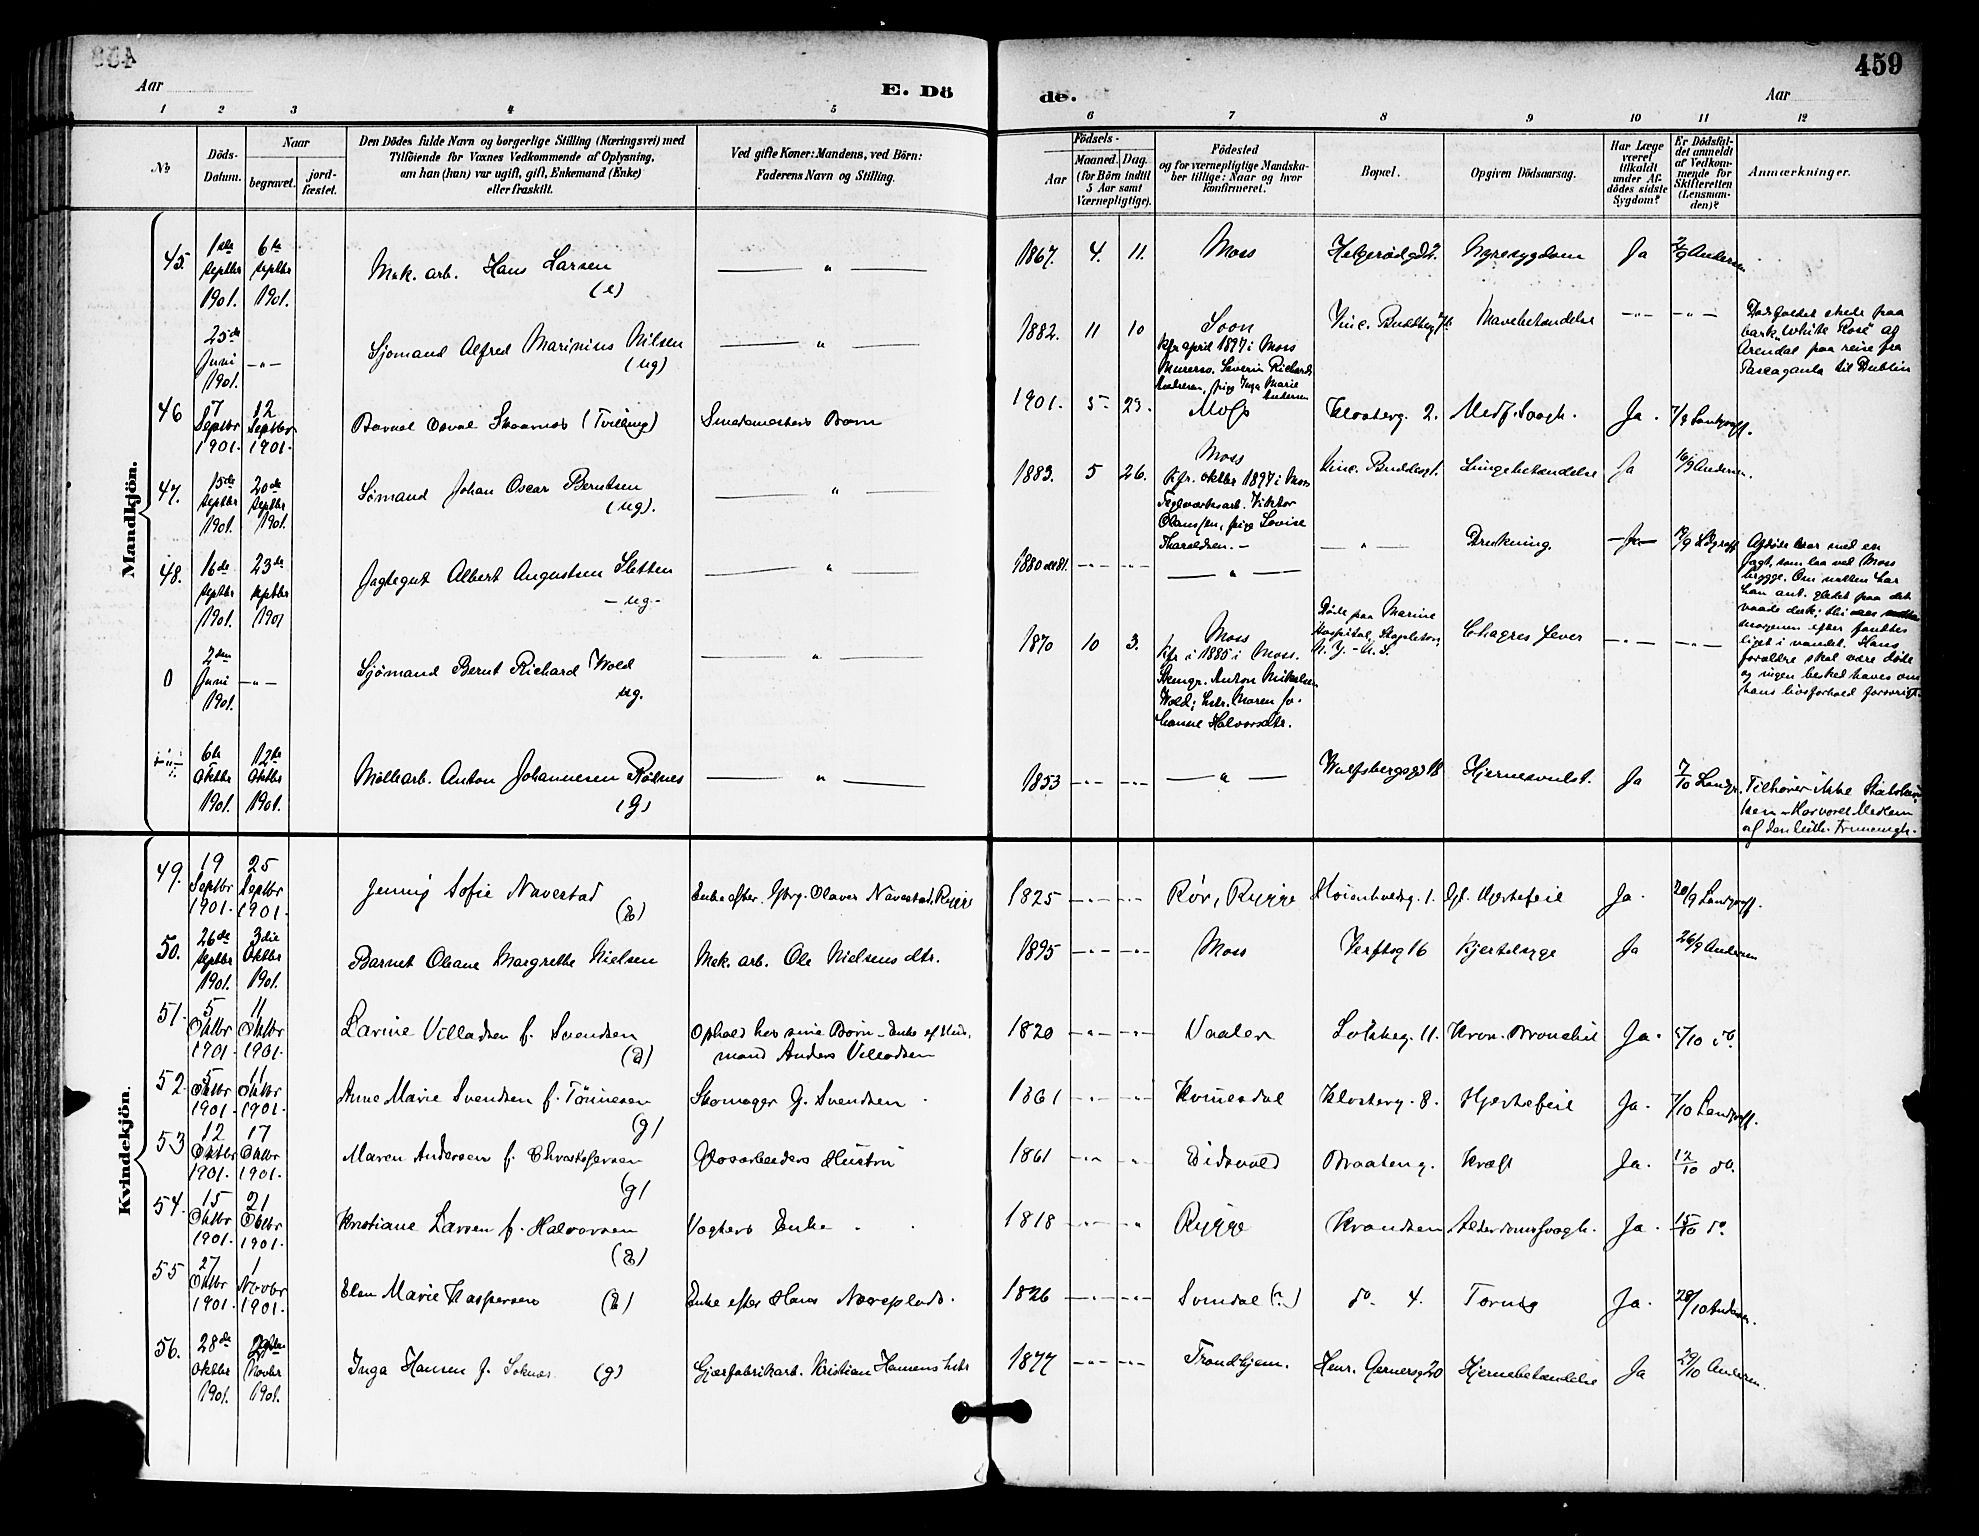 459
Aar
E. Dö
de.
Aar
1 2 3 4 5 6 7 8 9 10 11 12
No
Döds-
Datum.
Naar
begravet.
jord-
fæstet.
Den Dödes fulde Navn og borgerlige Stilling (Næringsvei) med
Tilföiende for Voxnes Vedkommende af Oplysning,
om han (hun) var ugift, gift, Enkemand (Enke)
eller fraskilt.
Ved gifte Koner: Mandens, ved Börn:
Faderens Navn og Stilling.
Födsels-
Aar
Maaned. Dag.
(for Börn indtil
5 Aar samt
Værnepligtige).
Födested
og for værnepligtige Mandska-
ber tillige: Naar og hvor
konfirmeret.
Bopæl.
Opgiven Dödsaarsag.
Har Læge
været
tilkaldt
under Af-
dödes sidste
Sygdom?
Er Dödsfal-
det anmeldt
af Vedkom-
mende for
Skifteretten
(Lensman-
den)?
Anmærkninger.
Mandkjön.
45. 1ste Septbr 1901. 6te Septbr 1901. Mek. arb. Hans Larsen (e) — " — 1867. 4. 11. Moss Helgerødgd 2. Nyresygdom Ja 2/9 Andersen
25de Juni 1901. — " — Sjømand Alfred Marinius Nilsen (ug) — " — 1882. 11 10 Soon
Kfr april 1897 i Moss
Murersv. Severin Richard
Andersen, pige Inga Marie
Andersen
Vinc. Buddesg Mavebetændelse — " — — " —
Dødsfaldet skete paa
bark "White Rose" af
Arendal paa reise fra
Pascagaula til Dublin
46 7 Septbr 1901. 12 Septbr 1901. Barnet Osval Skaarnes (Tvilling) Smedmesters Barn 1901. 5 23. Moss Klosterg. 2. Medf. Svagh. Ja. 7/9 Landgraff.
47. 15de Septbr 1901. 20de Septbr 1901. Sømand Johan Oscar Berntsen (ug). — " — 1883. 5 26. Moss
Kfr. oktbr 1897 i Moss
Teglværksarb. Viktor
Olaussen, pige Lovise
Tharaldsen. —
Vinc. Buddesgt. Lungebetændelse Ja 16/9 Andersen.
48. 16de Septbr 1901. 23de Septbr 1901 Jagtegut Albert Augustsen Sletten — ug. — — " — 1880 — " — — " — — " — — " — Drukning. 17/9 Ldgraff
Afdøde var med en
Jagt, som laa ved Moss
brygge. Om natten har
han ant. glidt paa det
vaade dæk; thi
morgenen efter fandtes
liget i vandet. Hans
forældre skal være døde
og ingen besked haves om
hans livsforhold forøvrigt.
0 2den Juni 1901. — " — Sjømand Bernt Richard Wold ug. — " — 1870 10 3. Moss
Kfr i 1885 i Moss.
Stengr. Anton Mikelsen
Wold; hstr. Maren Jo-
hanne Halvorsdtr.
Døde paa Marine
Hospital, Stapleton,
N. Y. – U. S.
Chagres Fever — " — — " —
6te Oktbr 1901. 12te Oktbr 1901. Møllearb. Anton Johannesen Rølnes (g) — " — 1853 — " — — " — — " — Wulfsbergsgd 18 Hjernesvulst. Ja 7/10 Landgr.
Tilhører ikke Statskir-
ken – Har været Medlem
af den luth. Frimenigh.
Kvindekjön.
49. 19 Septbr 1901. 25 Septbr 1901. Jenny Sofie Navestad (E) Enke efter Gbrg. Olaves Navestad, Rygge 1825 — " — — " — Rør, Rygge Høienholdsg. 1. Gl. Hjertefeil Ja. 20/9 Landgraff.
50. 26de Septbr 1901. 3die Oktbr 1901. Barnet Oleane Margrethe Nielsen Mek. arb. Ole Nielsens dtr. 1895 — " — — " — Moss Verftsg 16 Kjertelsyge Ja 26/9 Andersen
51. 5 Oktbr 1901. 11 Oktbr 1901. Larine Villadsen f. Svendsen (E) Ophold hos sine Børn – Enke af Hus-
mand Anders Villadsen 1820 — " — — " — Vaaler 11. Kron. Bronchit Ja. 5/10 do.
52. 5 Oktbr 1901. 11 Oktbr 1901. Anne Marie Svendsen f. Tönnesen (g) Skomager G. Svendsen 1861 — " — — " — Kvinesdal Klosterg. 8. Hjertefeil Ja. 7/10 Landgraff.
53 12 Oktbr 1901. 17 Oktbr 1901. Maren Andersen f. Christofersen (g) Glasarbeiders Hustru 1861 — " — — " — Eidsvold Braateng. Kræft Ja. 12/10 do.
54. 15 Oktbr 1901. 21 Oktbr 1901. Kristiane Larsen f. Halvorsen (E) Vogters Enke 1818 — " — — " — Rygge Kransen Alderdomssvagh. Ja. 15/10 do
55 27 Oktbr 1901. 1 Novbr 1901. Elen Marie Kaspersen (E) Enke efter Hans Næreplads. 1826 — " — — " — Svindal (?) do. 4. Tæring Ja. 28/10 Andersen.
56. 28de Oktbr 1901. Novbr 1901. Inga Hansen f. Soknes (g) Gjærfabrikarb. Kristian Hansens hstr 1877 — " — — " — Trondhjem. Henr. Gernersg 20 Hjernebetændelse Ja 29/10 Andersen.